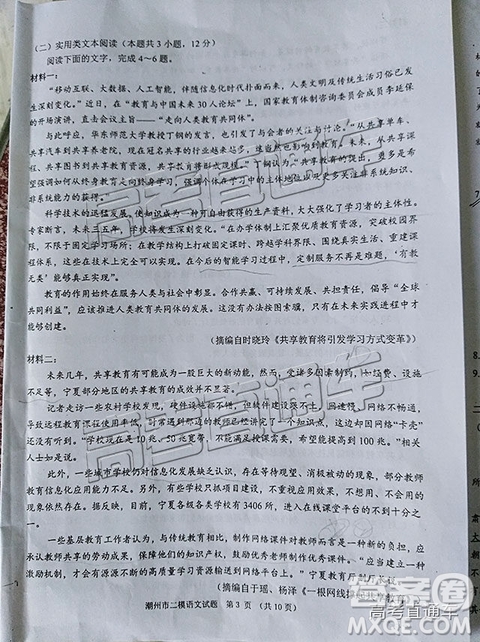 (二)实用类文本阅读(本题共3小题,12分)
阅读下面的文字,完成4~6题。
材料一:
“移动互联、大数据、人工智能,伴随信息化时代扑面而来,人类文明及传统生活习俗已发
生深刻变化。”近日,在“教育与中国未来30人论坛”上,国家教育体制咨询委员会成员李延保
的开场演讲,直击会议主旨——“走向人类教育共同体”。
与此呼应,华东师范大学教授丁钢的发言,也引发了与会者的关注与讨论。“从共享单车、
共享汽车到共享养老院,现在冠名共享的行业越来越多,
程、共享图书到共享教育资源,共享教育将形成规模。”丁钢认为,“共享教育的提出,更多是希
望强调如何从终身教育走向终身学习,强调个体在学习中的主动地位及更多关注非系统知识、非
系统能力的获得。”
科学技术的迅猛发展,使知识成为一种可自由获得的生产资料,大大强化了学习者的主体性。
专家断言,未来三五年,学校将发生深刻变化。“在办学体制上汇聚优质教育资源,突破校园界
限,不限固定学习场所;在教学结构上打破固定课时、跨越学科界限、围绕真实生活、重建课
程体系,这些在技术上完全可以实现。在今后的智能学习过程中,定制服务不再是难题,‘有教
无类’能够真正实现”。
教育的作用始终在服务人类与社会中彰显。合作共赢、可持续发展、共担责任,倡导“全球
共同利益”,应该推进人类教育共同体的发展。这没有办法按图索骥,只有在未来教育实践中才
能够创新。
(摘编自时晓玲《共享教育将引发学习方式变革》)
材料二:
未来几年,共享教育有可能成为一股巨大的新动能,然而,受诸多因素制约,
不足等,宁夏部分地区的共享教育的成效并不显著。
记者走访一些农村学校发现,硬件设备有了,
导致远程教育课程使用率低,
还没有听到。“学校现在是10兆、50兆宽带,不能满足授课需要,希望能提高到100兆。”相关
人士如是说。
此外,一些城市学校仍对信息化发展缺乏认识,存在等待观望、消极被动的现象,部分教师
教育信息化应用能力不足。另外,有些学校只抓项目建设,不重视应用效果,不想用、不会用的
现象依然存在。据反映,目前,宁夏各级各类学校有3406所,进入在线课堂平台的不到十分之
一。
一些基层教育工作者认为,与传统教育相比,制作网络课件对教师而言是一种新的负担,应
承认教师共享的劳动成果,保障他们的知识产权,鼓励优秀老师制作优秀课件。“应建立一种
激励机制,才会有更多的高质量学习资源输送到网络平台上。”宁夏教育厅
(摘编自于瑶、杨泽《一根网线
潮州市二模语文试题 第3页 (共10页)
高考直通车
答案圈
高考直通车